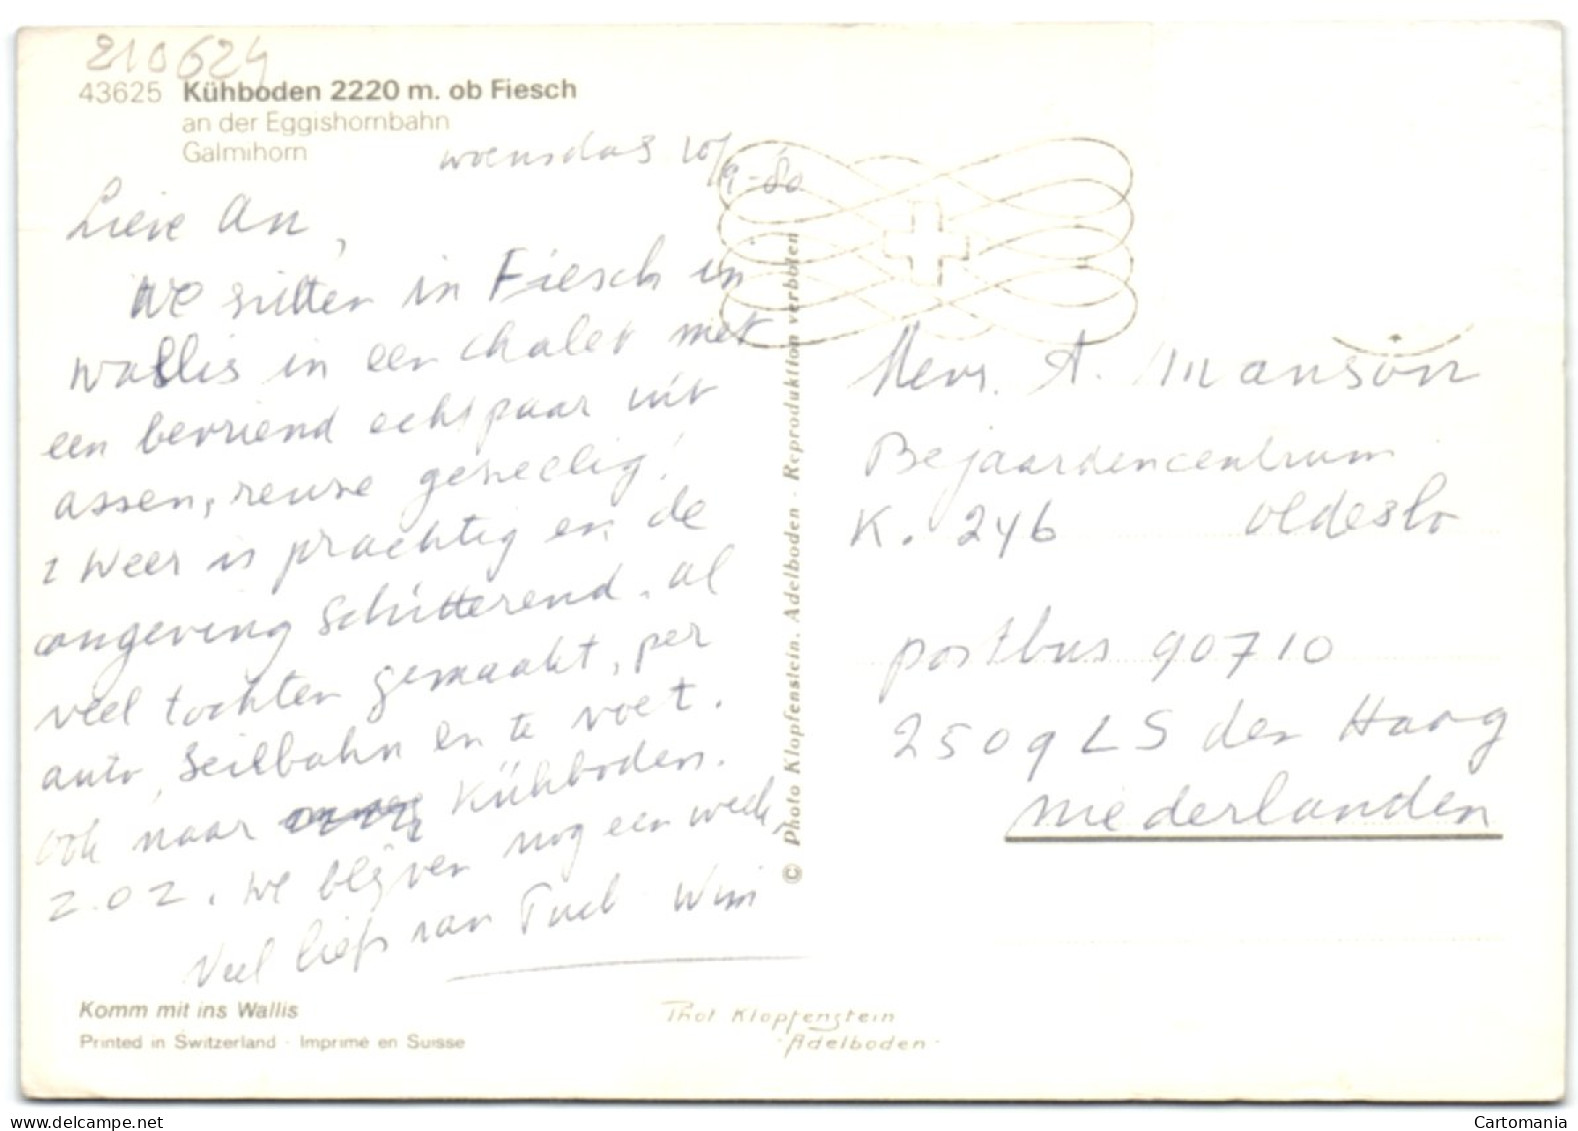 210624
43625 Kühboden 2220 m. ob Fiesch
an der Eggishornbahn
Galmihorn
woensdag 10/9-80
Lieve An,
We zitten in Fiesch in
Wallis in een chalet met
een bevriend echtpaar uit
Assen, reuze gezellig!
't Weer is prachtig en de
omgeving schitterend. al
veel tochten gemaakt, per
auto, Seilbahn en te voet.
ook naar Kühboden.
z.o.z. We blijven nog een week.
Veel liefs van Wim
Mevr. A. Manson
Bejaardencentrum
K. 246 Oldeslo
postbus 90710
2509 LS den Haag
Niederlanden
© Photo Klopfenstein, Adelboden - Reproduktion verboten
Komm mit ins Wallis
Printed in Switzerland · Imprimé en Suisse
Phot Klopfenstein
Adelboden
Cartomania